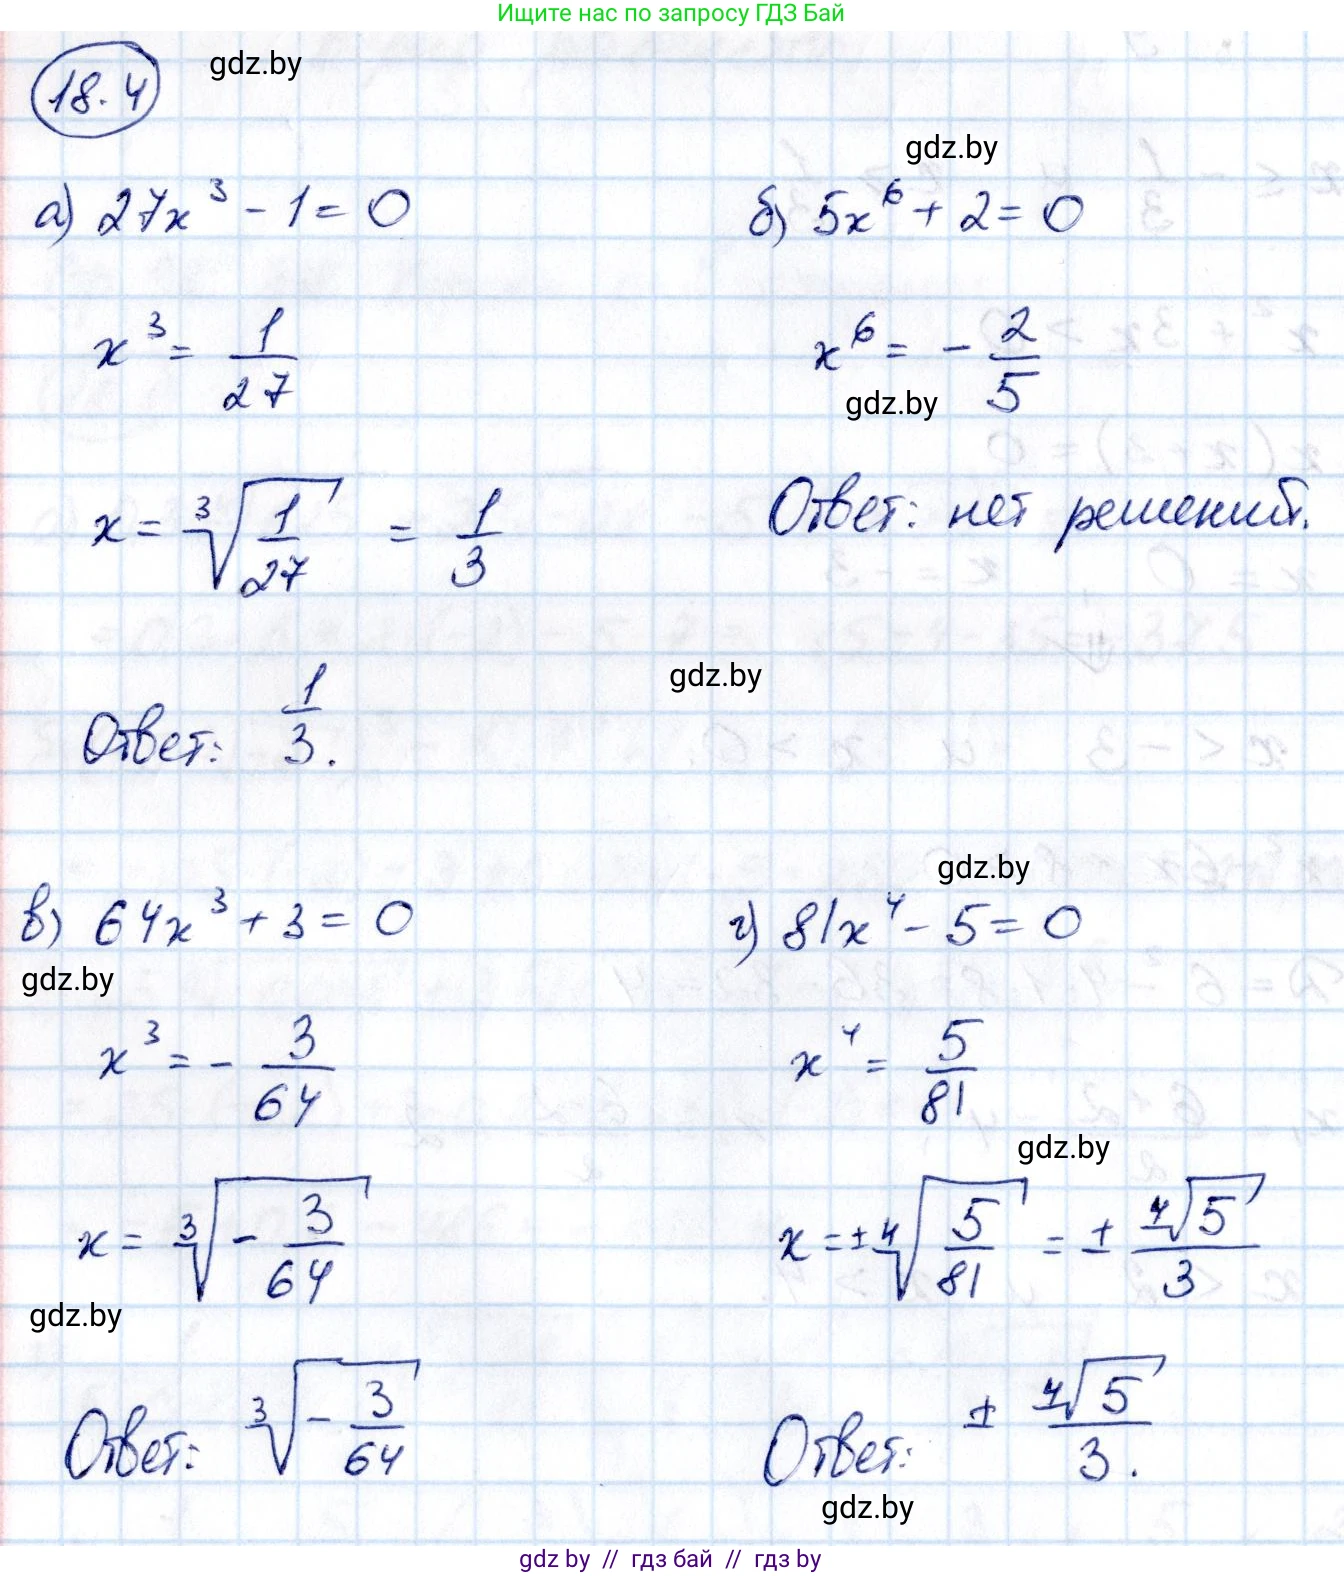 Ищите нас по запросу ГДЗ Бай
18.4
gdz.by
gdz.by
а) 27x³ - 1 = 0
x³ = 1/27
x = ∛(1/27) = 1/3
Ответ: 1/3.
б) 5x⁶ + 2 = 0
x⁶ = - 2/5
gdz.by
Ответ: нет решений.
gdz.by
в) 64x³ + 3 = 0
gdz.by
x³ = - 3/64
x = ∛(- 3/64)
gdz.by
Ответ: ∛(- 3/64)
gdz.by
г) 81x⁴ - 5 = 0
x⁴ = 5/81
gdz.by
x = ± ∜(5/81) = ± ∜5/3
Ответ: ± ∜5/3.
gdz.by
gdz by // гдз бай // гдз by